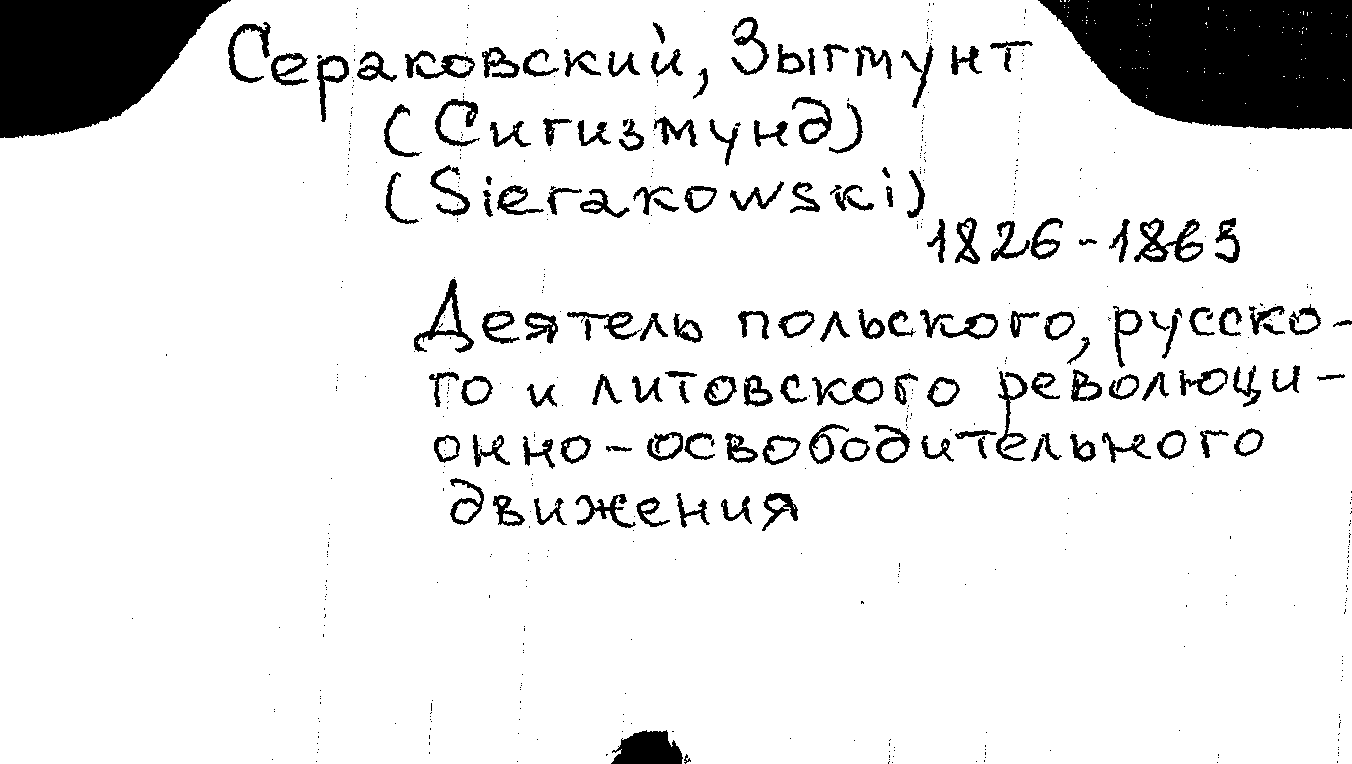 Сераковский, Зыгмунт
(Сигизмунд)
(Sierakowski)
1826-1863
Деятель польского, русско-
го и литовского революци-
онно-освободительного
движения